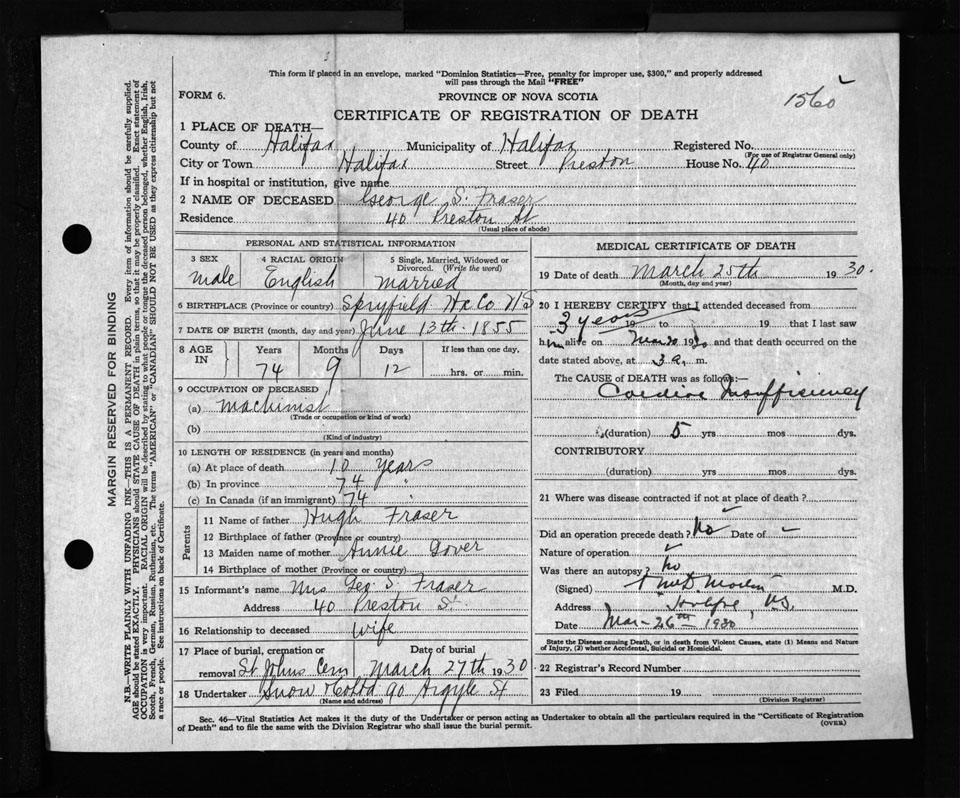 This form if placed in an envelope, marked "Dominion Statistics—Free, penalty for improper use, $300," and properly addressed
will pass through the Mail "FREE"
FORM 6.
PROVINCE OF NOVA SCOTIA
1560
CERTIFICATE OF REGISTRATION OF DEATH
1 PLACE OF DEATH—
County of Halifax Municipality of Halifax Registered No.
(For use of Registrar General only)
City or Town Halifax Street Preston House No. 40
If in hospital or institution, give name
2 NAME OF DECEASED George S. Fraser
Residence 40 Preston St
(Usual place of abode)
PERSONAL AND STATISTICAL INFORMATION
3 SEX 4 RACIAL ORIGIN 5 Single, Married, Widowed or
Divorced. (Write the word)
male English married
6 BIRTHPLACE (Province or country) Spryfield Hx Co NS
7 DATE OF BIRTH (month, day and year) June 13th 1855
8 AGE IN Years Months Days If less than one day.
74 9 12 hrs. or min.
9 OCCUPATION OF DECEASED
(a) machinist
(Trade or occupation or kind of work)
(b)
(Kind of industry)
10 LENGTH OF RESIDENCE (in years and months)
(a) At place of death 10 years
(b) In province 74 "
(c) In Canada (if an immigrant) 74 "
Parents
11 Name of father Hugh Fraser
12 Birthplace of father (Province or country)
13 Maiden name of mother Annie Gover
14 Birthplace of mother (Province or country)
15 Informant's name Mrs Geo. S. Fraser
Address 40 Preston St.
16 Relationship to deceased wife
17 Place of burial, cremation or Date of burial
removal St Johns Cem March 27th 1930
18 Undertaker Snow & Co Ltd 90 Argyle St
(Name and address)
MEDICAL CERTIFICATE OF DEATH
19 Date of death March 25th 1930.
(Month, day and year)
20 I HEREBY CERTIFY that I attended deceased from
3 years 19 to 19 that I last saw
him alive on Mar 20 1930 and that death occurred on the
date stated above, at 3 a. m.
The CAUSE of DEATH was as follows:—
Cardiac Insufficiency
(duration) 5 yrs mos dys.
CONTRIBUTORY
(duration) yrs mos dys.
21 Where was disease contracted if not at place of death?
Did an operation precede death? No Date of –
Nature of operation
Was there an autopsy? No
(Signed) M.D.
Address Halifax, N.S.
Date Mar-26th 1930
State the Disease causing Death, or in death from Violent Causes, state (1) Means and Nature
of Injury, (2) whether Accidental, Suicidal or Homicidal.
22 Registrar's Record Number
23 Filed 19
(Division Registrar)
Sec. 46—Vital Statistics Act makes it the duty of the Undertaker or person acting as Undertaker to obtain all the particulars required in the "Certificate of Registration
of Death" and to file the same with the Division Registrar who shall issue the burial permit.
(OVER)
MARGIN RESERVED FOR BINDING
N.B.—WRITE PLAINLY WITH UNFADING INK—THIS IS A PERMANENT RECORD. Every item of information should be carefully supplied.
AGE should be stated EXACTLY. PHYSICIANS should STATE CAUSE OF DEATH in plain terms, so that it may be properly classified. Exact statement of
OCCUPATION is very important. RACIAL ORIGIN will be described by stating to what people or tongue the deceased person belonged, whether English, Irish,
Scotch, French, German, Russian, Ruthenian, etc. The terms "AMERICAN" or "CANADIAN" SHOULD NOT BE USED as they express citizenship but not
a race or people. See instructions on back of Certificate.